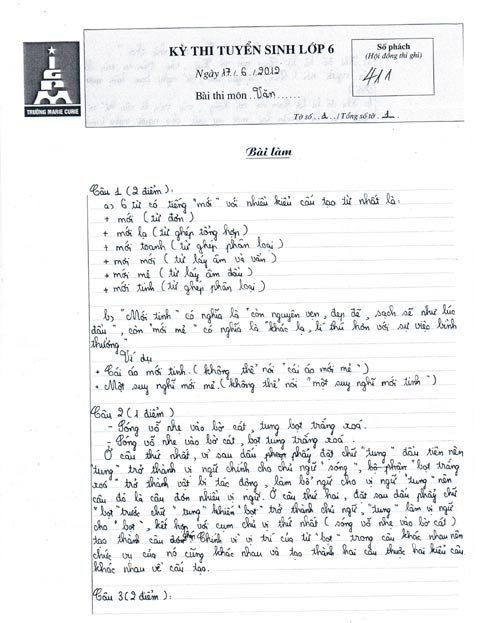 KỲ THI TUYỂN SINH LỚP 6
Ngày 17/6/2012
Bài thi môn Văn
Số phách
(Hội đồng thi ghi)
411
Tờ số 1 /Tổng số tờ 1
TRƯỜNG MARIE CURIE
Bài làm
Câu 1 (2 điểm):
a) 6 từ có tiếng "mới" với nhiều kiểu cấu tạo từ nhất là:
+ mới (từ đơn)
+ mới lạ (từ ghép tổng hợp)
+ mới toanh (từ ghép phân loại)
+ mơi mới (từ láy âm và vần)
+ mới mẻ (từ láy âm đầu)
+ mới tinh (từ ghép phân loại)
b) "Mới tinh" có nghĩa là "còn nguyên vẹn, đẹp đẽ, sạch sẽ như lúc
đầu", còn "mới mẻ" có nghĩa là "khác lạ, lí thú hơn với sự việc bình
thường"
Ví dụ
+ Cái áo mới tinh. (không thể nói "cái áo mới mẻ")
+ Một suy nghĩ mới mẻ. (không thể nói "một suy nghĩ mới tinh")
Câu 2 (1 điểm)
- Sóng vỗ nhẹ vào bờ cát, tung bọt trắng xoá.
- Sóng vỗ nhẹ vào bờ cát, bọt tung trắng xoá.
Ở câu thứ nhất, vì sau dấu phẩy đặt chữ "tung" đầu tiên nên
"tung" trở thành vị ngữ chính cho chủ ngữ "sóng", bộ phận "bọt trắng
xoá" trở thành vật bị tác động, làm bổ ngữ cho vị ngữ "tung" nên
câu đó là câu đơn nhiều vị ngữ. Ở câu thứ hai, đặt sau dấu phẩy chữ
"bọt" trước chữ "tung" khiến "bọt" trở thành chủ ngữ, "tung" làm vị ngữ
cho "bọt", kết hợp với cụm chủ vị thứ nhất (sóng vỗ nhẹ vào bờ cát)
tạo thành câu ghép. Chính vì vị trí của từ "bọt" trong câu khác nhau nên
chức vụ của nó cũng khác nhau và tạo thành hai câu thuộc hai kiểu câu
khác nhau về cấu tạo.
Câu 3 (2 điểm):